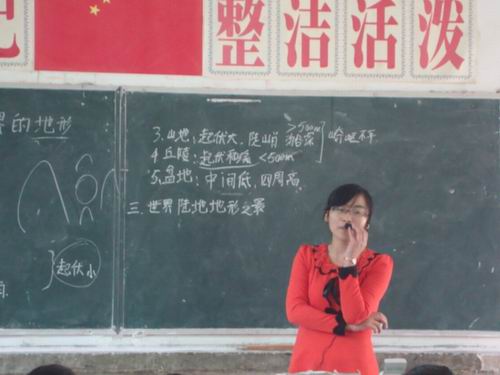 整洁活泼
界的地形
起伏小
3.山地:起伏大,陡峭 >500m
4.丘陵:起伏和缓 <500m
崎岖不平
5.盆地:中间低,四周高
三.世界陆地地形之最